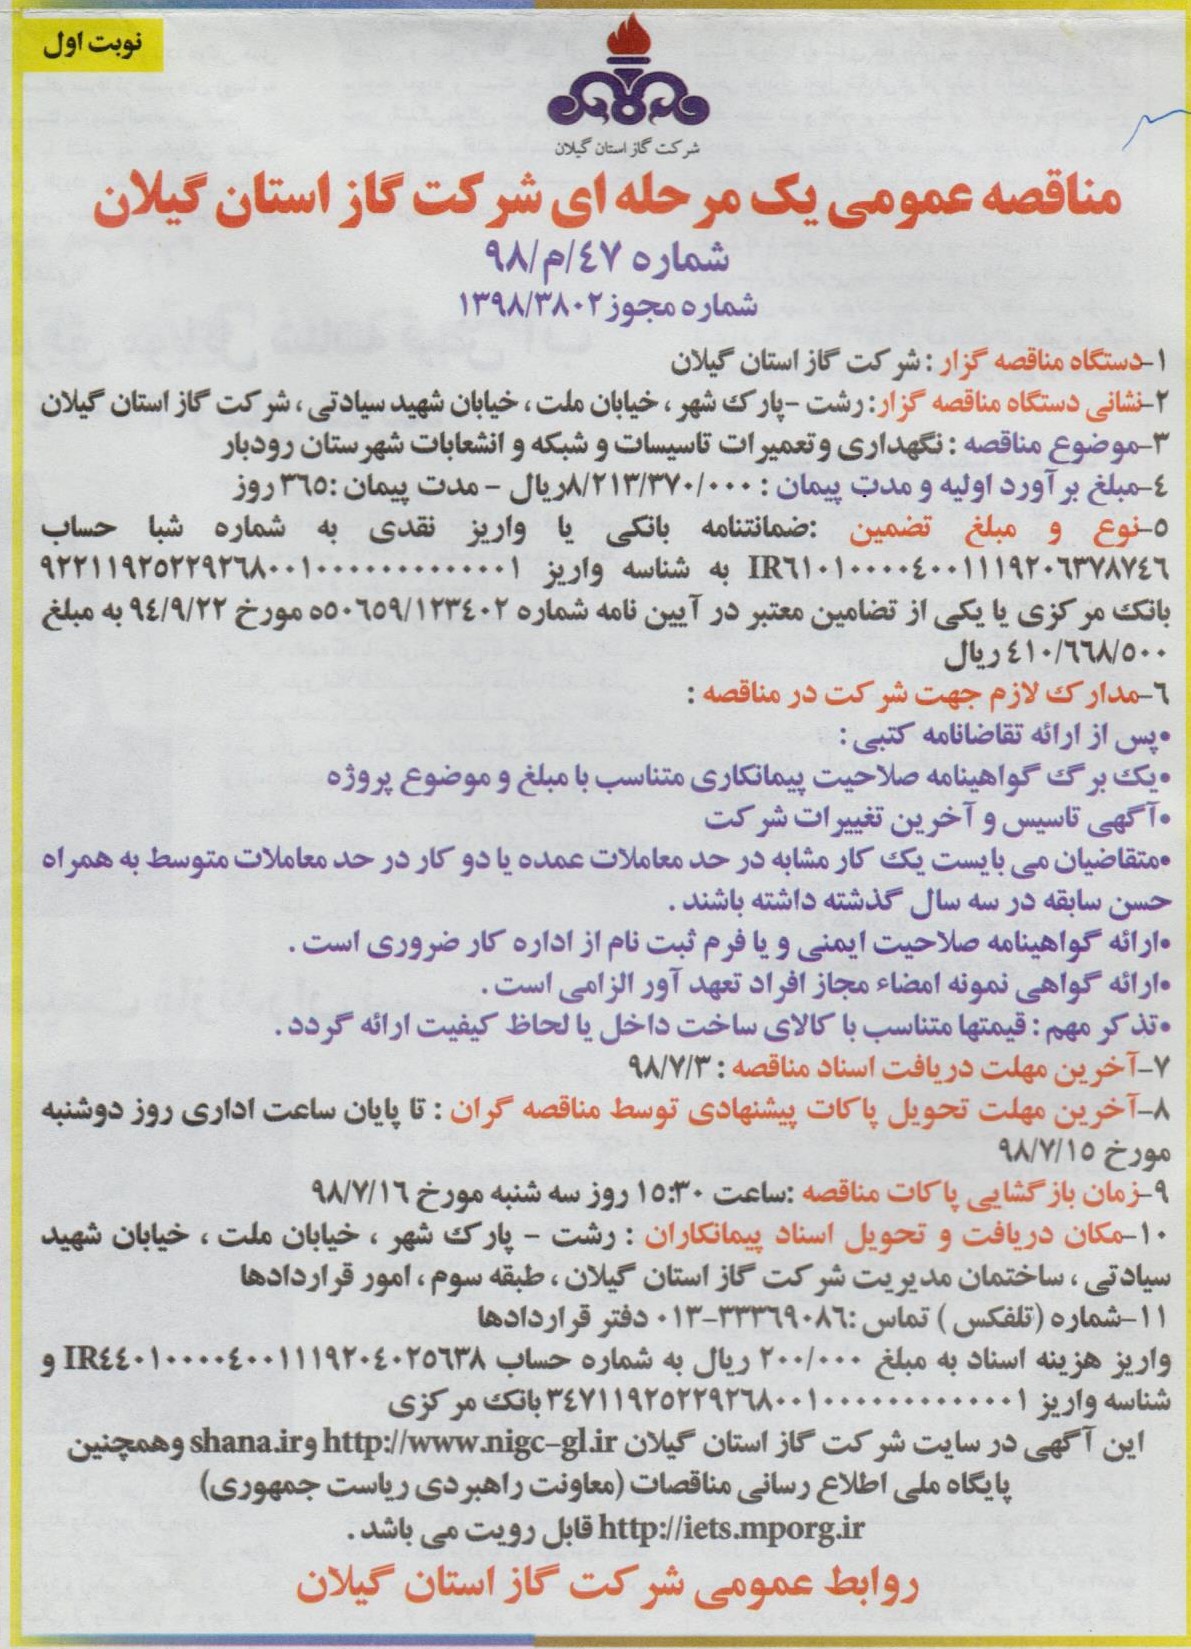 نوبت اول
شرکت گاز استان گیلان
مناقصه عمومی یک مرحله ای شرکت گاز استان گیلان
شماره ٤٧/م/٩٨
شماره مجوز ١٣٩٨/٣٨٠٢
١-دستگاه مناقصه گزار : شرکت گاز استان گیلان
٢-نشانی دستگاه مناقصه گزار: رشت -پارک شهر ، خیابان ملت ، خیابان شهید سیادتی ، شرکت گاز استان گیلان
٣-موضوع مناقصه : نگهداری وتعمیرات تاسیسات و شبکه و انشعابات شهرستان رودبار
٤-مبلغ برآورد اولیه و مدت پیمان : ٨/٢١٣/٣٧٠/٠٠٠ریال - مدت پیمان :٣٦٥ روز
٥-نوع و مبلغ تضمین :ضمانتنامه بانکی یا واریز نقدی به شماره شبا حساب
IR٦١٠١٠٠٠٠٤٠٠١١١٩٢٠٦٣٧٨٧٤٦ به شناسه واریز ٩٢٢١١٩٢٥٢٢٩٢٦٨٠٠١٠٠٠٠٠٠٠٠٠٠٠٠٠١
بانک مرکزی یا یکی از تضامین معتبر در آیین نامه شماره ١٢٣٤٠٢/٥٠٦٥٩ه مورخ ٩٤/٩/٢٢ به مبلغ
٤١٠/٦٦٨/٥٠٠ ریال
٦-مدارک لازم جهت شرکت در مناقصه :
•پس از ارائه تقاضانامه کتبی :
•یک برگ گواهینامه صلاحیت پیمانکاری متناسب با مبلغ و موضوع پروژه
•آگهی تاسیس و آخرین تغییرات شرکت
•متقاضیان می بایست یک کار مشابه در حد معاملات عمده یا دو کار در حد معاملات متوسط به همراه
حسن سابقه در سه سال گذشته داشته باشند .
•ارائه گواهینامه صلاحیت ایمنی و یا فرم ثبت نام از اداره کار ضروری است .
•ارائه گواهی نمونه امضاء مجاز افراد تعهد آور الزامی است .
•تذکر مهم : قیمتها متناسب با کالای ساخت داخل یا لحاظ کیفیت ارائه گردد .
٧-آخرین مهلت دریافت اسناد مناقصه : ٩٨/٧/٣
٨-آخرین مهلت تحویل پاکات پیشنهادی توسط مناقصه گران : تا پایان ساعت اداری روز دوشنبه
مورخ ٩٨/٧/١٥
٩-زمان بازگشایی پاکات مناقصه :ساعت ١٥:٣٠ روز سه شنبه مورخ ٩٨/٧/١٦
١٠-مکان دریافت و تحویل اسناد پیمانکاران : رشت - پارک شهر ، خیابان ملت ، خیابان شهید
سیادتی ، ساختمان مدیریت شرکت گاز استان گیلان ، طبقه سوم ، امور قراردادها
١١-شماره (تلفکس ) تماس :٣٣٣٦٩٠٨٦-٠١٣ دفتر قراردادها
واریز هزینه اسناد به مبلغ ٢٠٠/٠٠٠ ریال به شماره حساب IR٤٤٠١٠٠٠٠٤٠٠١١١٩٢٠٤٠٢٥٦٣٨ و
شناسه واریز ٣٤٧١١٩٢٥٢٢٩٢٦٨٠٠١٠٠٠٠٠٠٠٠٠٠٠٠٠١ بانک مرکزی
این آگهی در سایت شرکت گاز استان گیلان http://www.nigc-gl.ir وshana.ir وهمچنین
پایگاه ملی اطلاع رسانی مناقصات (معاونت راهبردی ریاست جمهوری)
http://iets.mporg.ir قابل رویت می باشد .
روابط عمومی شرکت گاز استان گیلان